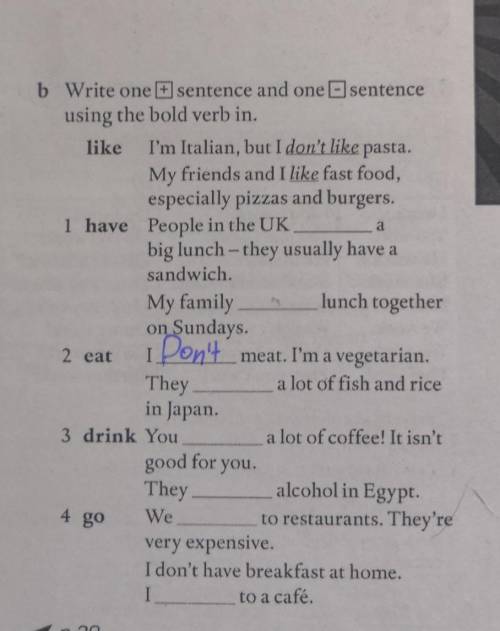 b Write one + sentence and one - sentence
using the bold verb in.
like I'm Italian, but I don't like pasta.
My friends and I like fast food,
especially pizzas and burgers.
1 have People in the UK ________ a
big lunch – they usually have a
sandwich.
My family ________ lunch together
on Sundays.
2 eat I Don't meat. I'm a vegetarian.
They ________ a lot of fish and rice
in Japan.
3 drink You ________ a lot of coffee! It isn't
good for you.
They ________ alcohol in Egypt.
4 go We ________ to restaurants. They're
very expensive.
I don't have breakfast at home.
I ________ to a café.